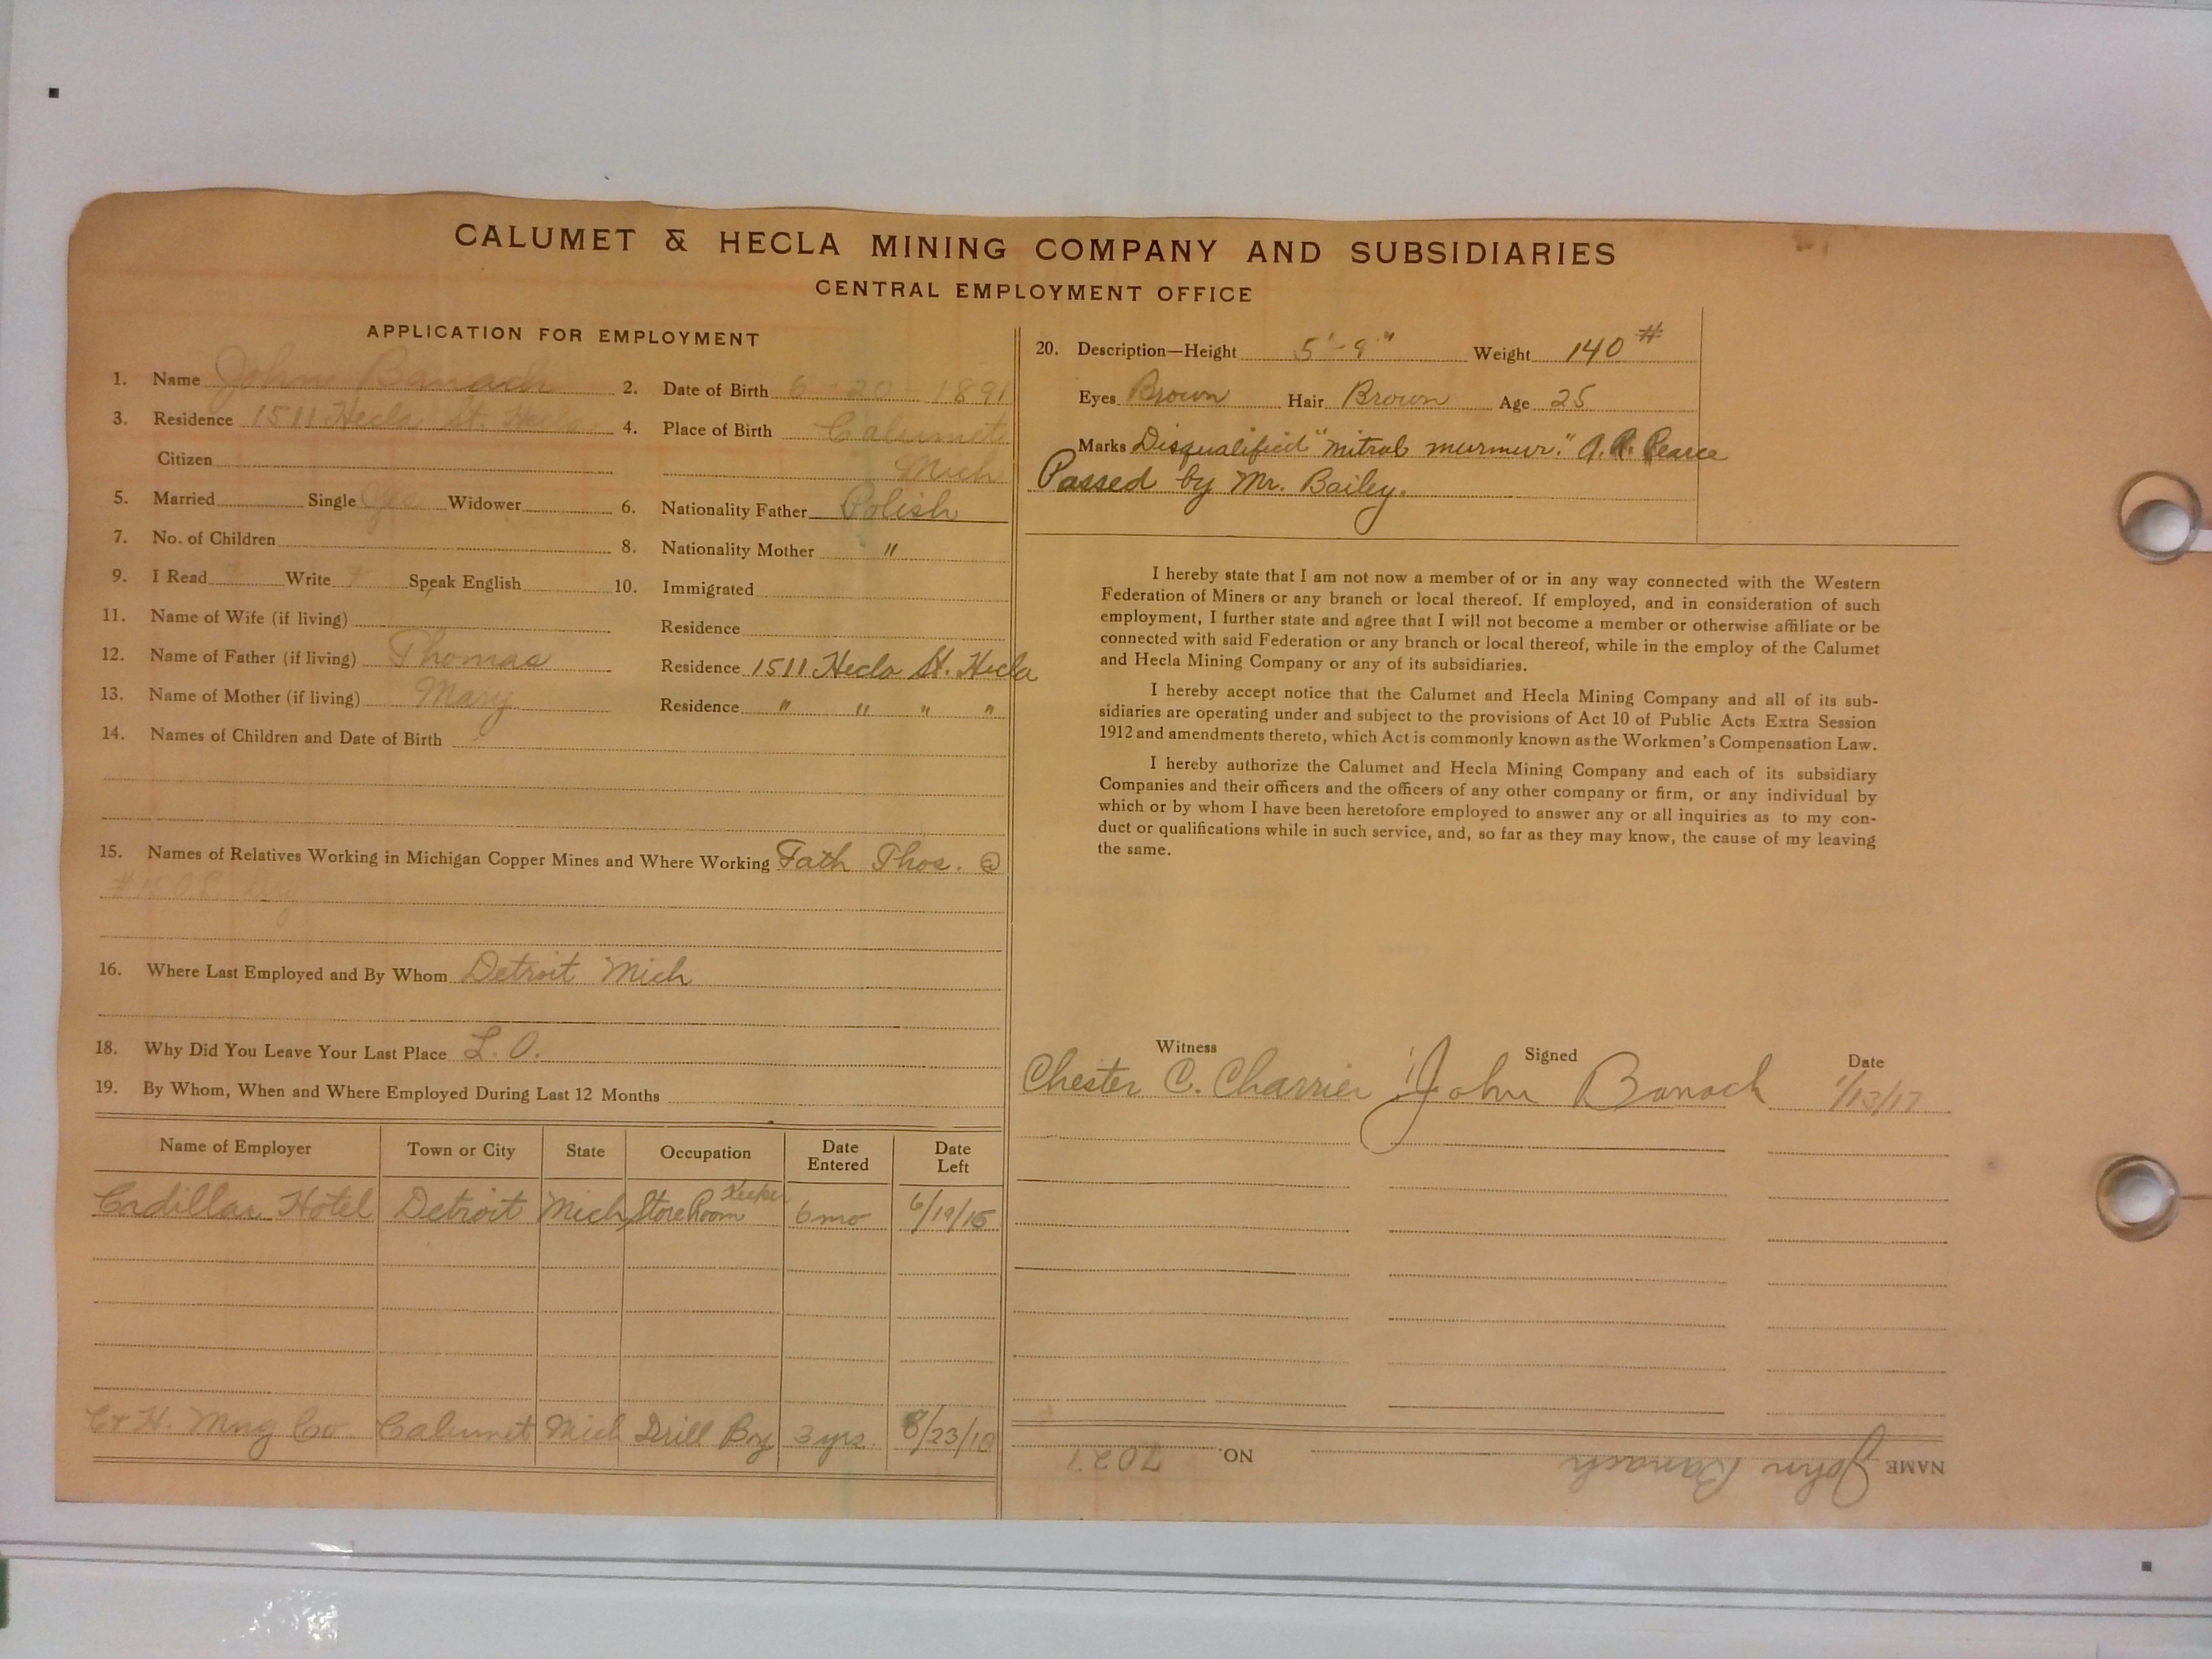 CALUMET & HECLA MINING COMPANY AND SUBSIDIARIES
CENTRAL EMPLOYMENT OFFICE
APPLICATION FOR EMPLOYMENT
1. Name John Banach 2. Date of Birth 6 20 1891
3. Residence 1511 Hecla St. Hecla 4. Place of Birth Calumet
Citizen Mich
5. Married Single Yes Widower 6. Nationality Father Polish
7. No. of Children 8. Nationality Mother "
9. I Read Write Speak English 10. Immigrated
11. Name of Wife (if living) Residence
12. Name of Father (if living) Thomas Residence 1511 Hecla St. Hecla
13. Name of Mother (if living) Mary Residence " " " "
14. Names of Children and Date of Birth
15. Names of Relatives Working in Michigan Copper Mines and Where Working Fath Thos. @
16. Where Last Employed and By Whom Detroit Mich
18. Why Did You Leave Your Last Place L. O.
19. By Whom, When and Where Employed During Last 12 Months
Name of Employer Town or City State Occupation Date Entered Date Left
Cadillac Hotel Detroit Mich Store Room Keeper 6 mo 6/19/15
C & H. Mng Co. Calumet Mich Drill Boy 3 yrs. 8/23/10
20. Description—Height 5'-9" Weight 140#
Eyes Brown Hair Brown Age 25
Marks Disqualified "mitral murmur." A. R. Pearce
Passed by Mr. Bailey.
I hereby state that I am not now a member of or in any way connected with the Western
Federation of Miners or any branch or local thereof. If employed, and in consideration of such
employment, I further state and agree that I will not become a member or otherwise affiliate or be
connected with said Federation or any branch or local thereof, while in the employ of the Calumet
and Hecla Mining Company or any of its subsidiaries.
I hereby accept notice that the Calumet and Hecla Mining Company and all of its sub-
sidiaries are operating under and subject to the provisions of Act 10 of Public Acts Extra Session
1912 and amendments thereto, which Act is commonly known as the Workmen's Compensation Law.
I hereby authorize the Calumet and Hecla Mining Company and each of its subsidiary
Companies and their officers and the officers of any other company or firm, or any individual by
which or by whom I have been heretofore employed to answer any or all inquiries as to my con-
duct or qualifications while in such service, and, so far as they may know, the cause of my leaving
the same.
Witness Signed Date
Chester C. Charrier John Banach 1/13/17
NAME John Banach NO. 7027